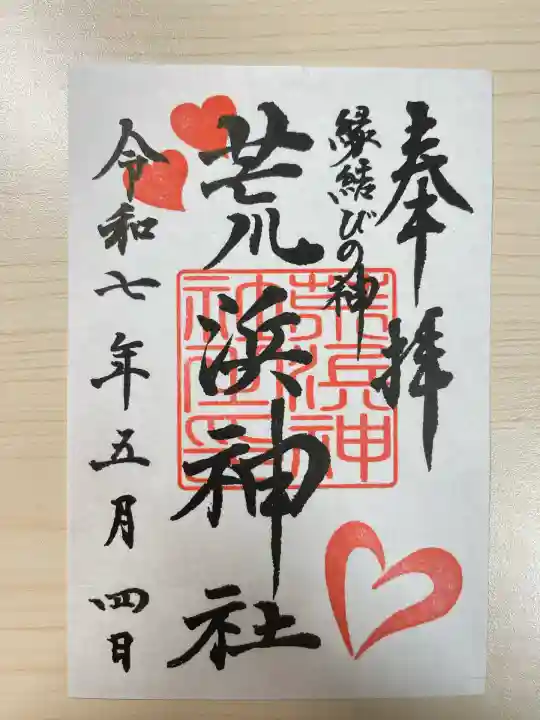 奉拝
縁結びの神
荒浜神社
荒浜神
社之印
令和七年五月四日